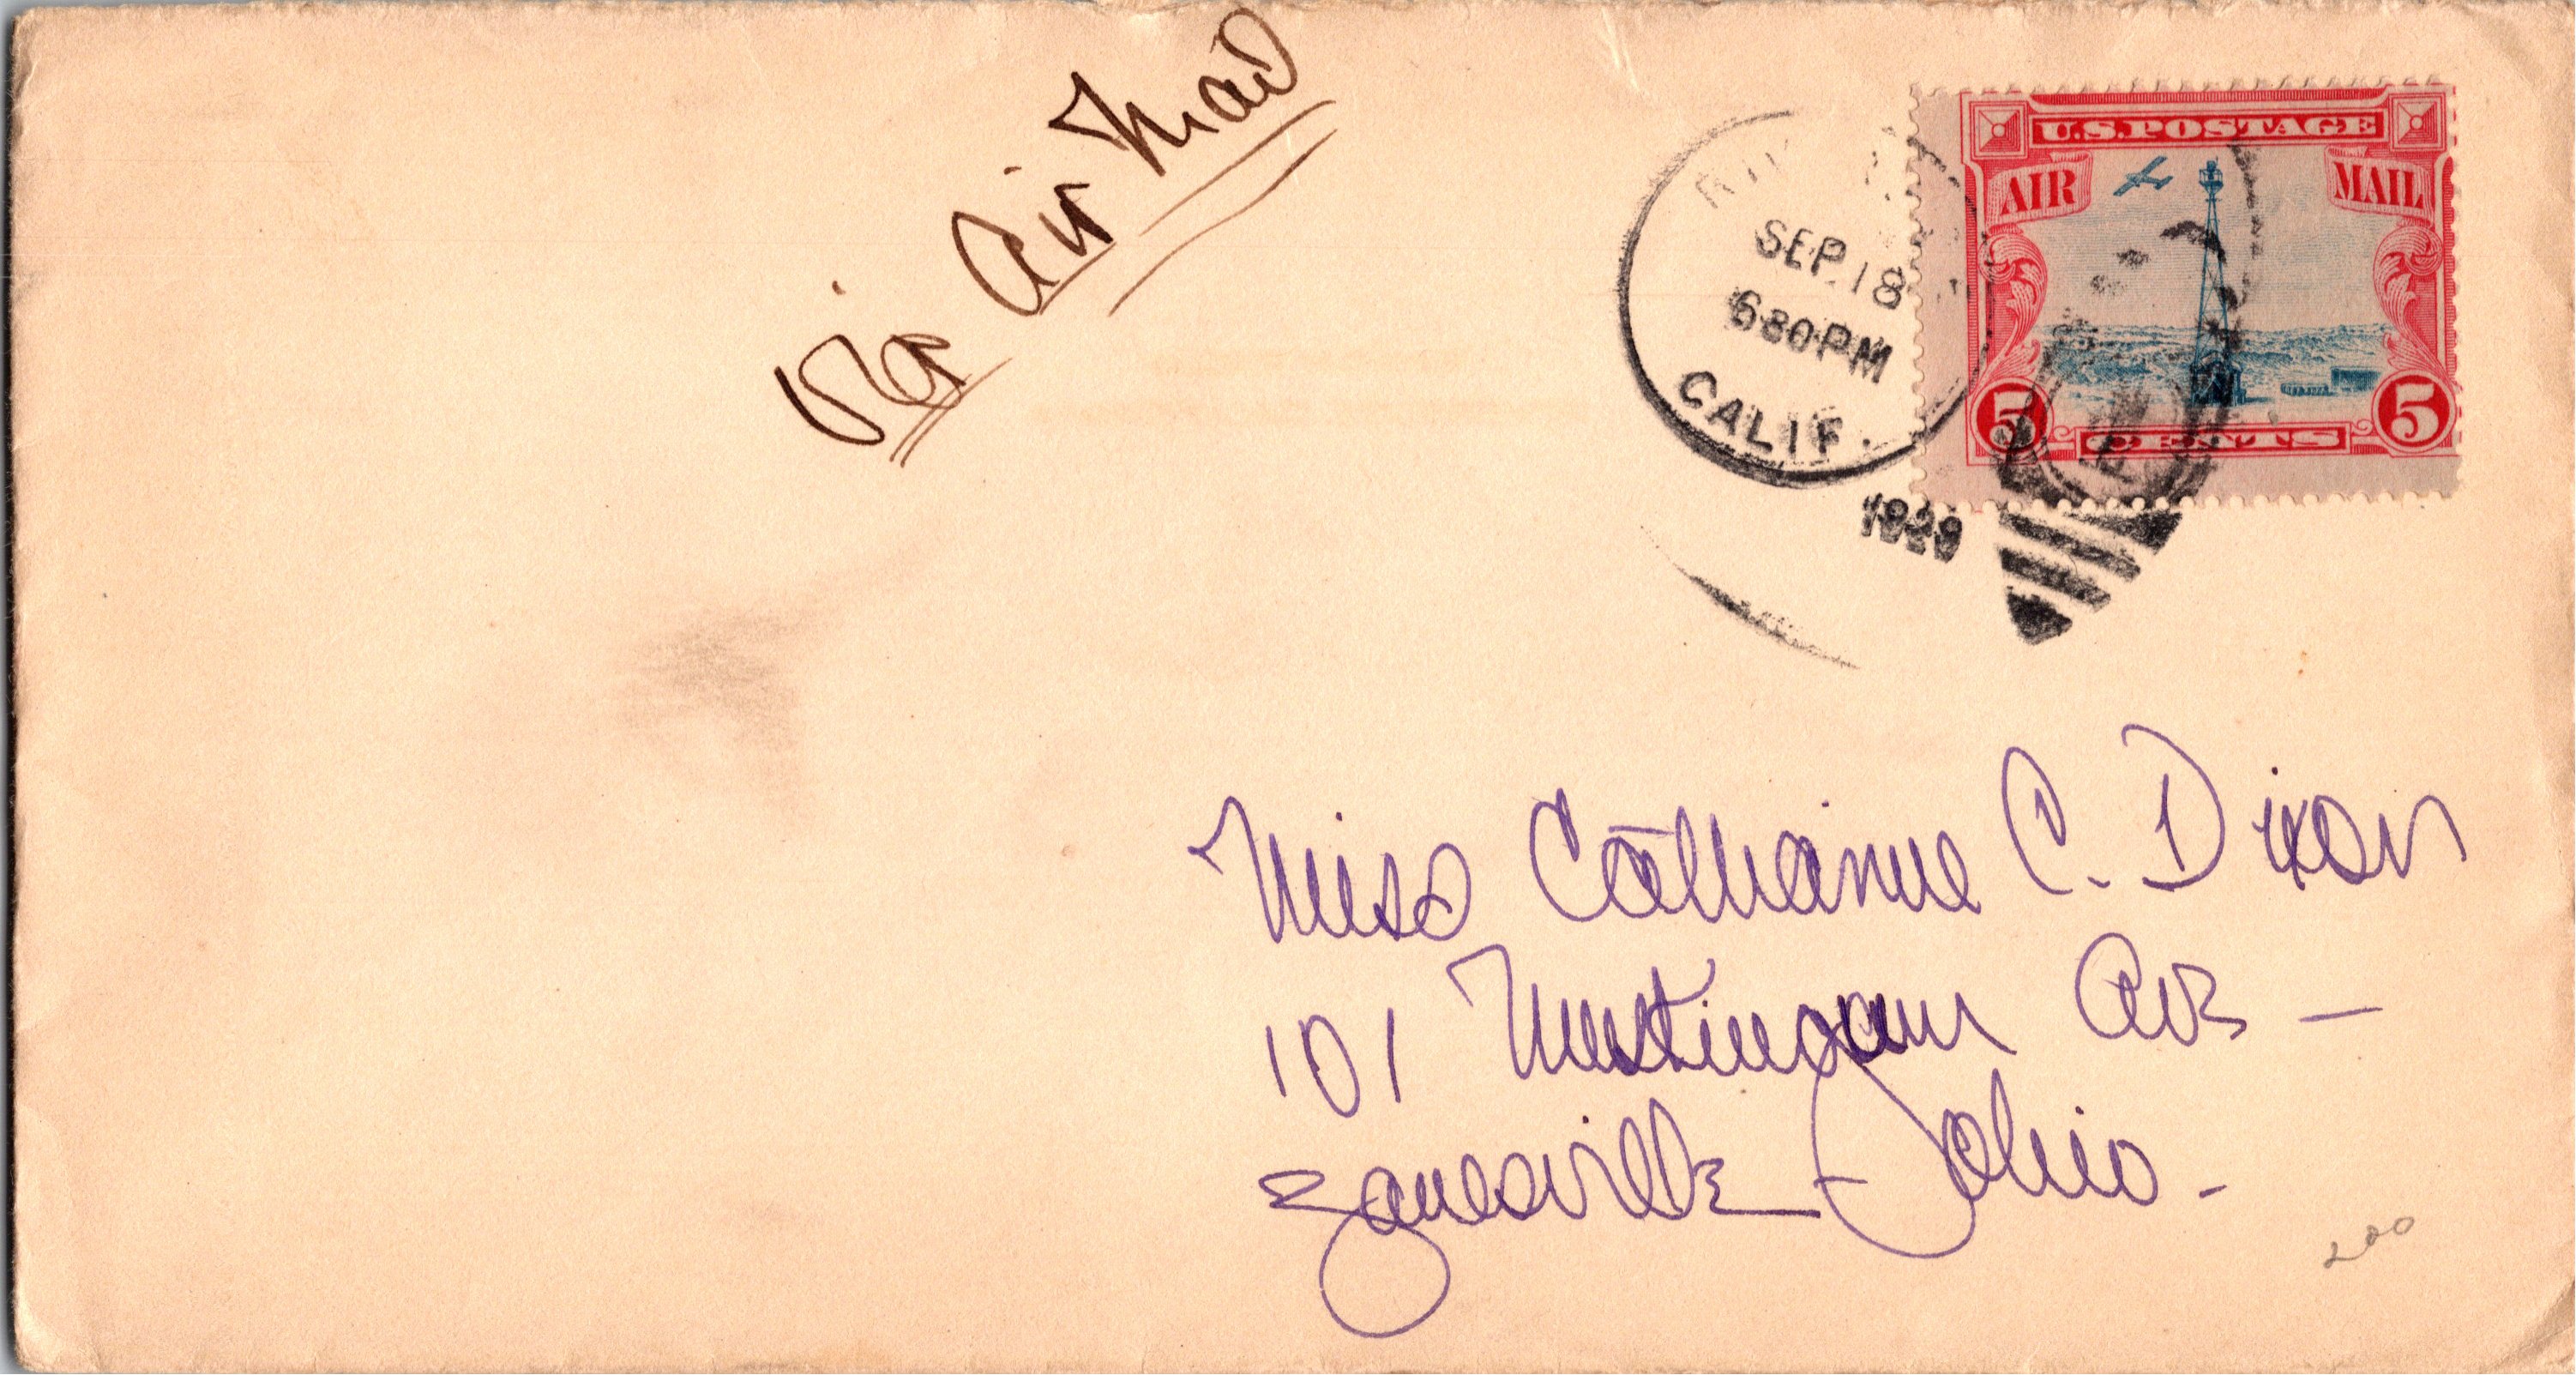 Via Air Mail
SEP 18
630 PM
CALIF.
1929
U.S. POSTAGE
AIR MAIL
5 CENTS 5
Miss Catharine C. Dixon
101 Muskingum Ave -
Zanesville - Ohio -
200